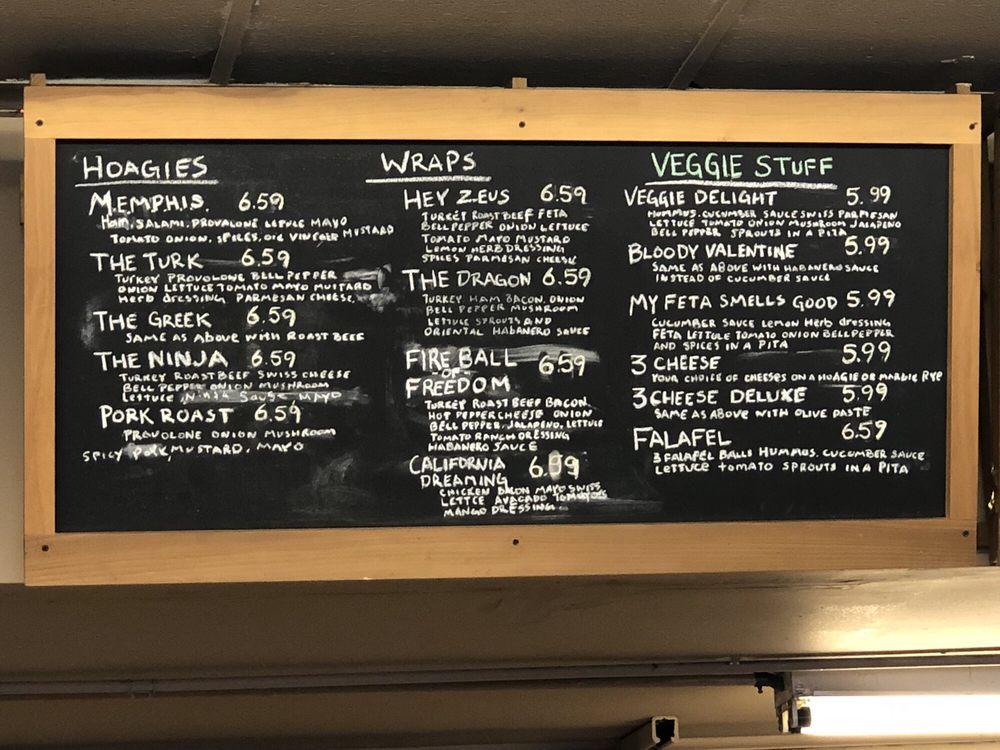 HOAGIES
MEMPHIS. 6.59
Ham, SALAMI, PROVALONE LETTUCE MAYO
TOMATO ONION, SPICES, OIL VINEGAR MUSTARD
THE TURK 6.59
TURKEY PROVOLONE BELL PEPPER
ONION LETTUCE TOMATO MAYO MUSTARD
Herb dressing PARMESAN CHEESE
THE GREEK 6.59
SAME AS ABOVE WITH ROAST BEEF
THE NINJA 6.59
TURKEY ROAST BEEF SWISS CHEESE
BELL PEPPER ONION MUSHROOM
LETTUCE Ninja Sauce MAYO
PORK ROAST 6.59
PROVOLONE ONION MUSHROOM
SPICY Pork MUSTARD, MAYO
WRAPS
HEY ZEUS 6.59
TURKEY ROAST BEEF FETA
BELL PEPPER ONION LETTUCE
TOMATO MAYO MUSTARD
LEMON HERB DRESSING
SPICES PARMESAN CHEESE
THE DRAGON 6.59
TURKEY HAM BACON ONION
BELL PEPPER MUSHROOM
LETTUCE SPROUTS AND
ORIENTAL HABANERO SAUCE
FIRE BALL 6.59
-OF-
FREEDOM
TURKEY ROAST BEEF BACON
HOT PEPPER CHEESE ONION
BELL PEPPER, JALAPENO, LETTUCE
TOMATO RANCH DRESSING
HABANERO SAUCE
CALIFORNIA 6.99
DREAMING
CHICKEN BACON MAYO SWISS
LETTCE AVACADO TOMATOES
MANGO DRESSING
VEGGIE STUFF
VEGGIE DELIGHT 5.99
HUMMUS. CUCUMBER SAUCE SWISS PARMESAN
LETTUCE TOMATO ONION MUSHROOM JALAPENO
BELL PEPPER SPROUTS IN A PITA
BLOODY VALENTINE 5.99
SAME AS ABOVE WITH HABANERO SAUCE
INSTEAD OF CUCUMBER SAUCE
MY FETA SMELLS GOOD 5.99
CUCUMBER SAUCE LEMON Herb dressing
FETA LETTUCE TOMATO ONION BELL PEPPER
AND SPICES IN A PITA
3 CHEESE 5.99
YOUR CHOICE OF CHEESES ON A HOAGIE OR MARBLE RYE
3 CHEESE DELUXE 5.99
SAME AS ABOVE WITH OLIVE PASTE
FALAFEL 6.59
3 FALAFEL BALLS HUMMUS. CUCUMBER SAUCE
LETTUCE TOMATO SPROUTS IN A PITA